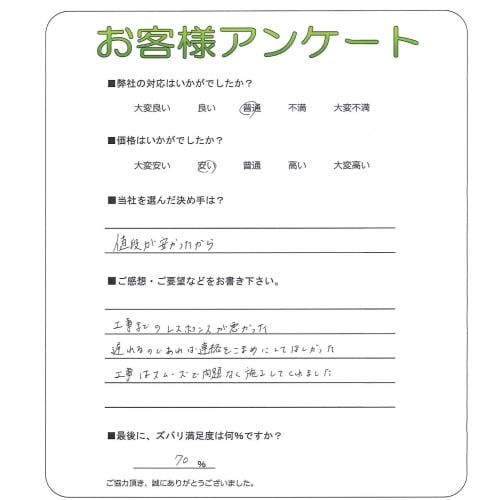 お客様アンケート
■弊社の対応はいかがでしたか？
大変良い 良い 普通 不満 大変不満
■価格はいかがでしたか？
大変安い 安い 普通 高い 大変高い
■当社を選んだ決め手は？
値段が安かったから
■ご感想・ご要望などをお書き下さい。
工事までのレスポンスが悪かった
遅れるのであれば連絡をこまめにしてほしかった
工事はスムーズで問題なく施工してくれました
■最後に、ズバリ満足度は何%ですか？
70 %
ご協力頂き、誠にありがとうございました。